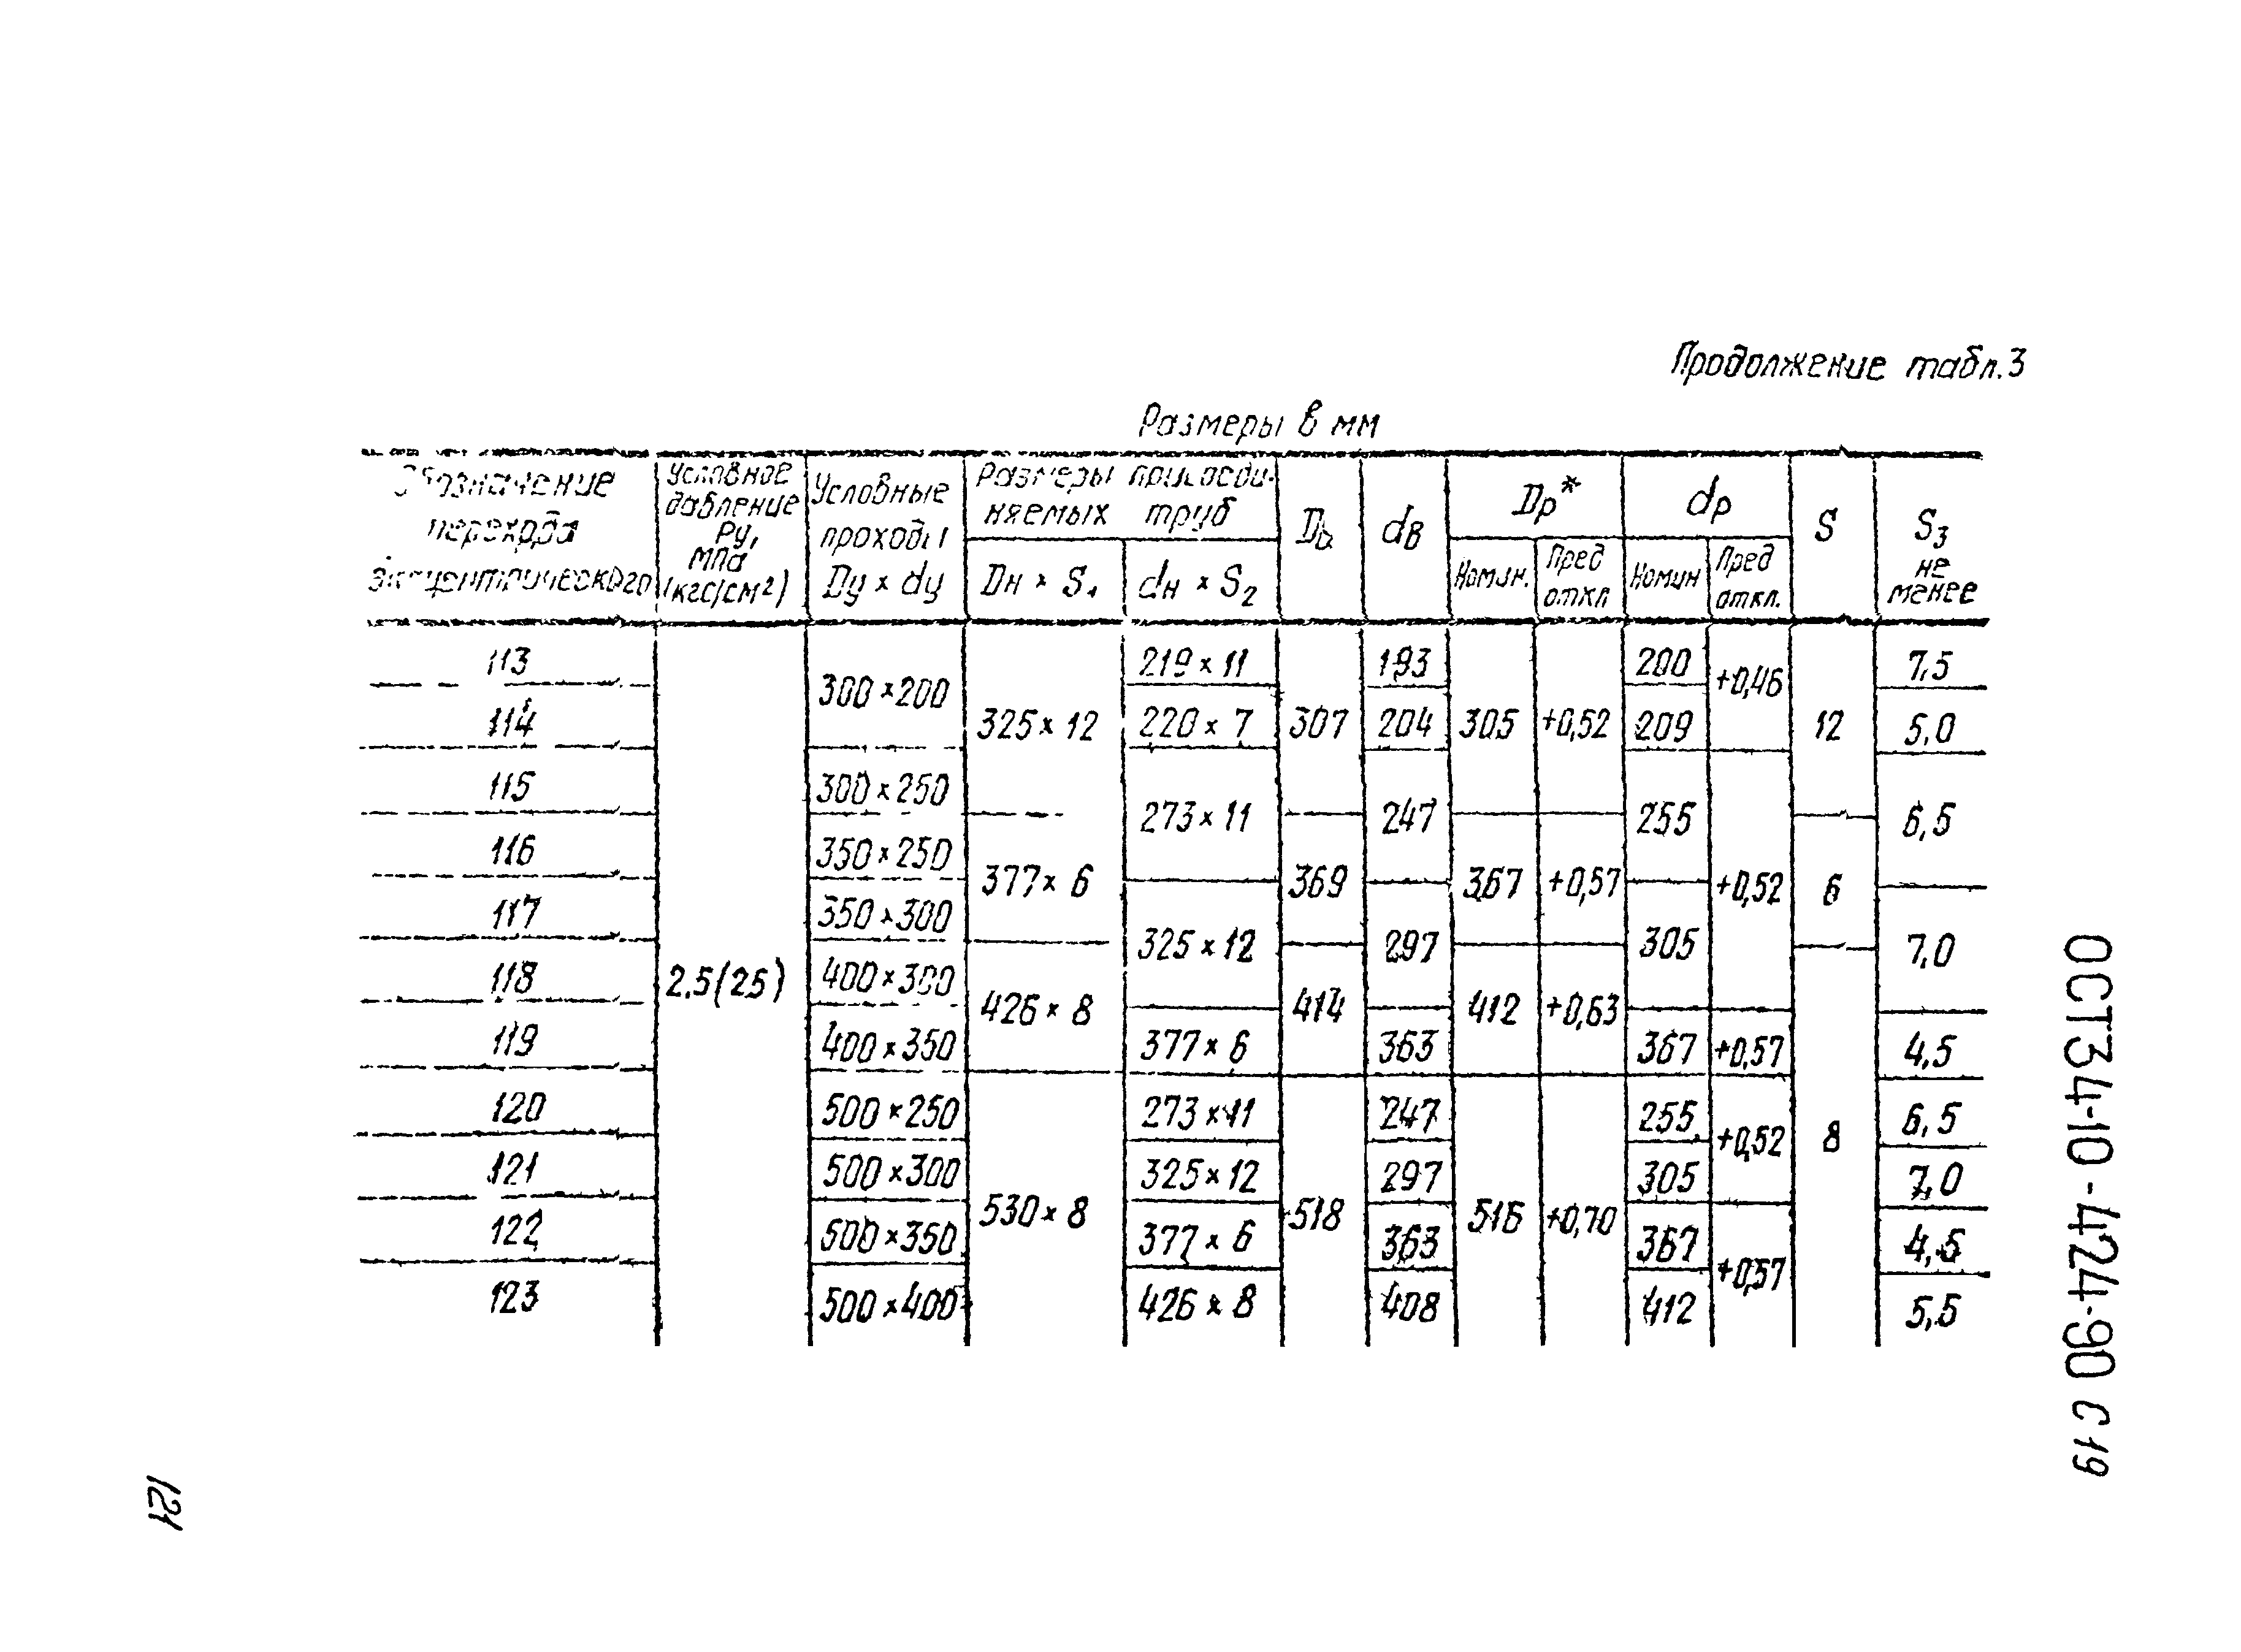 Продолжение табл.3
Размеры в мм
Обозначение перехода эксцентрического | Условное давление Ру, МПа (кгс/см²) | Условные проходы Dу × dу | Размеры присоединяемых труб | Dв | dв | Dр* | dр | S | S₃ не менее
Dн × S₁ | dн × S₂ | Номин. | Пред откл | Номин | Пред откл.
113 | 2,5(25) | 300×200 | 325×12 | 219×11 | 307 | 193 | 305 | +0,52 | 200 | +0,46 | 12 | 7,5
114 | 220×7 | 204 | 209 | 5,0
115 | 300×250 | 273×11 | 247 | 255 | +0,52 | 6,5
116 | 350×250 | 377×6 | 369 | 367 | +0,57 | 6
117 | 350×300 | 325×12 | 297 | 305 | 7,0
118 | 400×300 | 426×8 | 414 | 412 | +0,63 | 8
119 | 400×350 | 377×6 | 363 | 367 | +0,57 | 4,5
120 | 500×250 | 530×8 | 273×11 | 518 | 247 | 516 | +0,70 | 255 | +0,52 | 6,5
121 | 500×300 | 325×12 | 297 | 305 | 7,0
122 | 500×350 | 377×6 | 363 | 367 | +0,57 | 4,5
123 | 500×400 | 426×8 | 408 | 412 | 5,5
ОСТ34-10-424-90 С 19
121